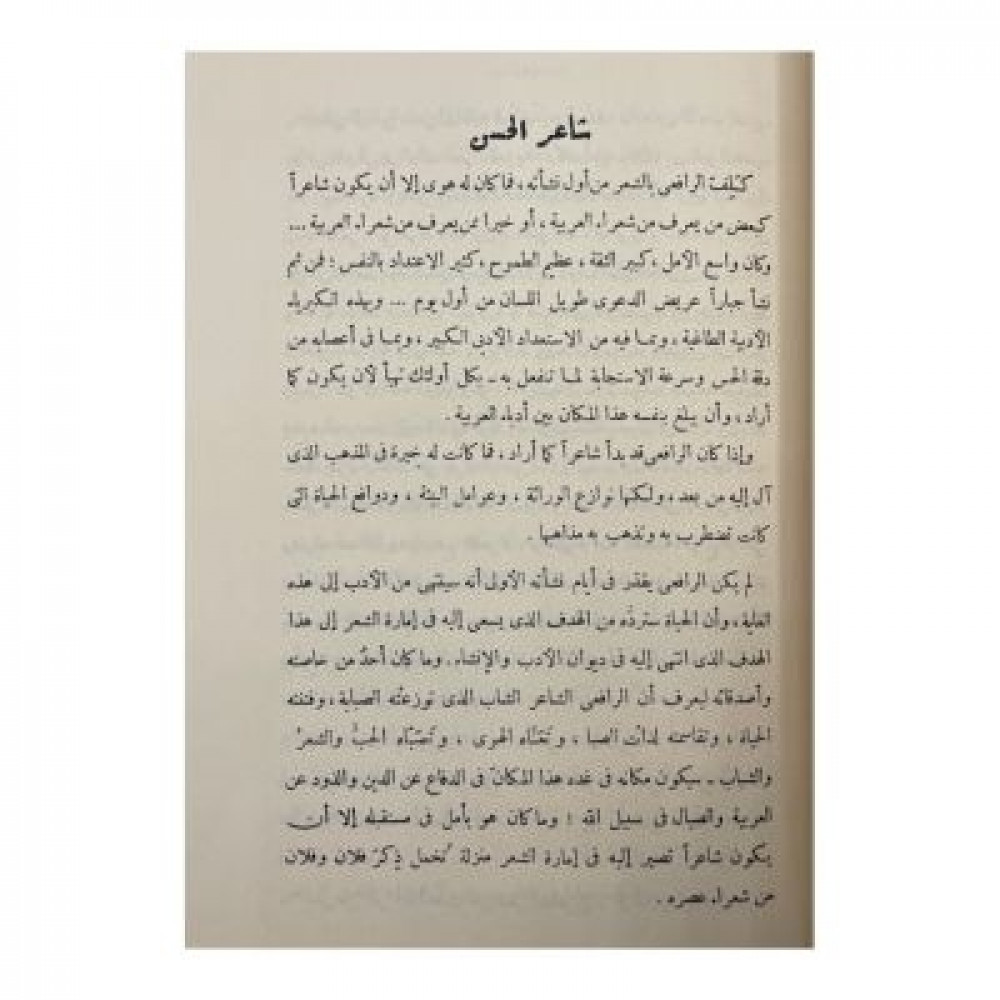 شاعر الحسن
كَلِفَ الرافعى بالشعر من أول نشأته ، فما كان له هوى إلا أن يكون شاعراً
كبعض من يعرف من شعراء العربية ، أو خيرا ممن يعرف من شعراء العربية ...
وكان واسع الأمل ، كبير الثقة ، عظيم الطموح ، كثير الاعتداد بالنفس ؛ فمن ثم
نشأ جباراً عريض الدعوى طويل اللسان من أول يوم ... وبهذه الكبرياء
الأدبية الطاغية ، وبما فيه من الاستعداد الأدبى الكبير ، وبما فى أعصابه من
دقة الحس وسرعة الاستجابة لما تنفعل به ـ بكل أولئك تهيأ لأن يكون كما
أراد ، وأن يبلغ بنفسه هذا المكان بين أدباء العربية .
وإذا كان الرافعى قد بدأ شاعراً كما أراد ، فما كانت له خيرة فى المذهب الذى
آل إليه من بعد ، ولكنها نوازع الوراثة ، وعوامل البيئة ، ودوافع الحياة التى
كانت تضطرب به وتذهب به مذاهبها .
لم يكن الرافعى يقدر فى أيام نشأته الأولى أنه سينتهى من الأدب إلى هذه
الغاية ، وأن الحياة ستردّه من الهدف الذى يسعى إليه فى إمارة الشعر إلى هذا
الهدف الذى انتهى إليه فى ديوان الأدب والإنشاء . وما كان أحدٌ من خاصته
وأصدقائه ليعرف أن الرافعى الشاعر الشاب الذى توزعتْه الصبابة ، وفتنته
الحياة ، وتقاسمته لذات الصبا ، وتَعَنَّاه الهوى ، وتَصَبَّاه الحبُّ والشعرُ
والشباب ـ سيكون مكانه فى غده هذا المكانَ فى الدفاع عن الدين والذود عن
العربية والصيال فى سبيل الله ؛ وما كان هو يأمل فى مستقبله إلا أن
يكون شاعراً تصير إليه فى إمارة الشعر منزلة تُخمل ذِكرَ فلان وفلان
من شعراء عصره .